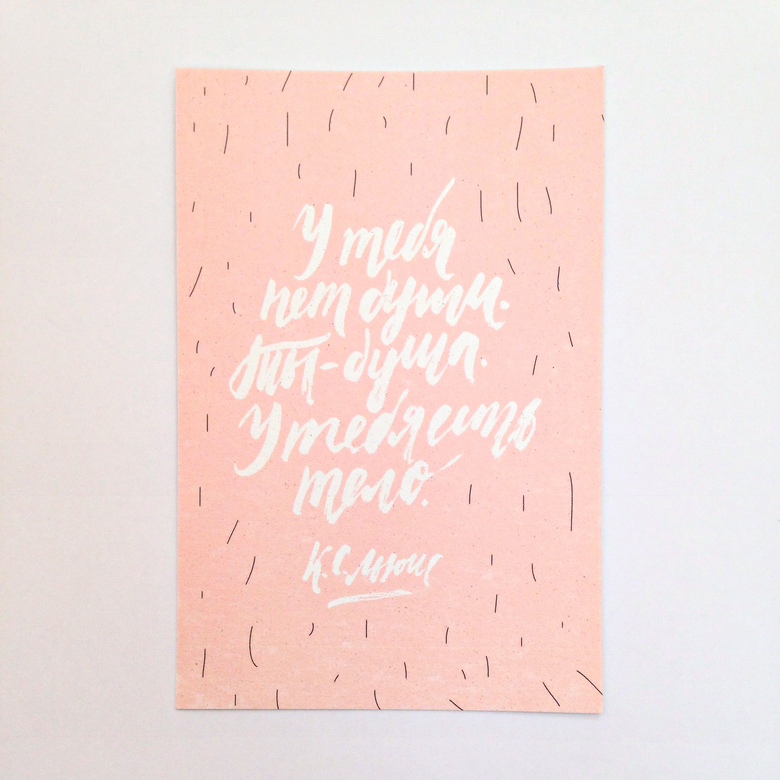 У тебя
нет души.
Ты-душа.
У тебя есть
тело.
К.С. Льюис